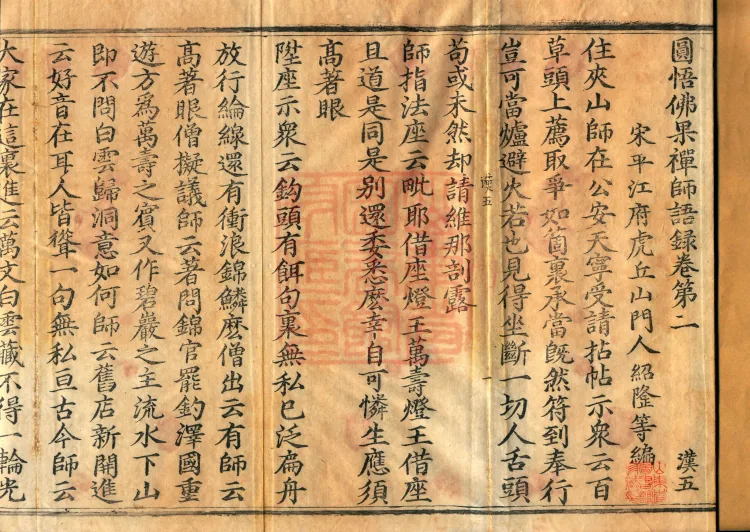 圓悟佛果禪師語錄卷第二 漢五
宋平江府虎丘山門人紹隆等編
住夾山師在公安天寧受請拈帖示衆云百
草頭上薦取爭如箇裏承當旣然符到奉行
豈可當爐避火若也見得坐斷一切人舌頭
漢五 一
苟或未然却請維那剖露
師指法座云毗耶借座燈王萬壽燈王借座
且道是同是別還委悉麼幸自可憐生應須
高著眼
陞座示衆云鈎頭有餌句裏無私已泛扁舟
放行綸線還有衝浪錦鱗麽僧出云有師云
高著眼僧擬議師云著問錦官罷釣澤國重
遊方為萬壽之賓又作碧巖之主流水下山
即不問白雲歸洞意如何師云舊店新開進
云好音在耳人皆聳一句無私亘古今師云
大家在這裏進云萬丈白雲藏不得一輪光